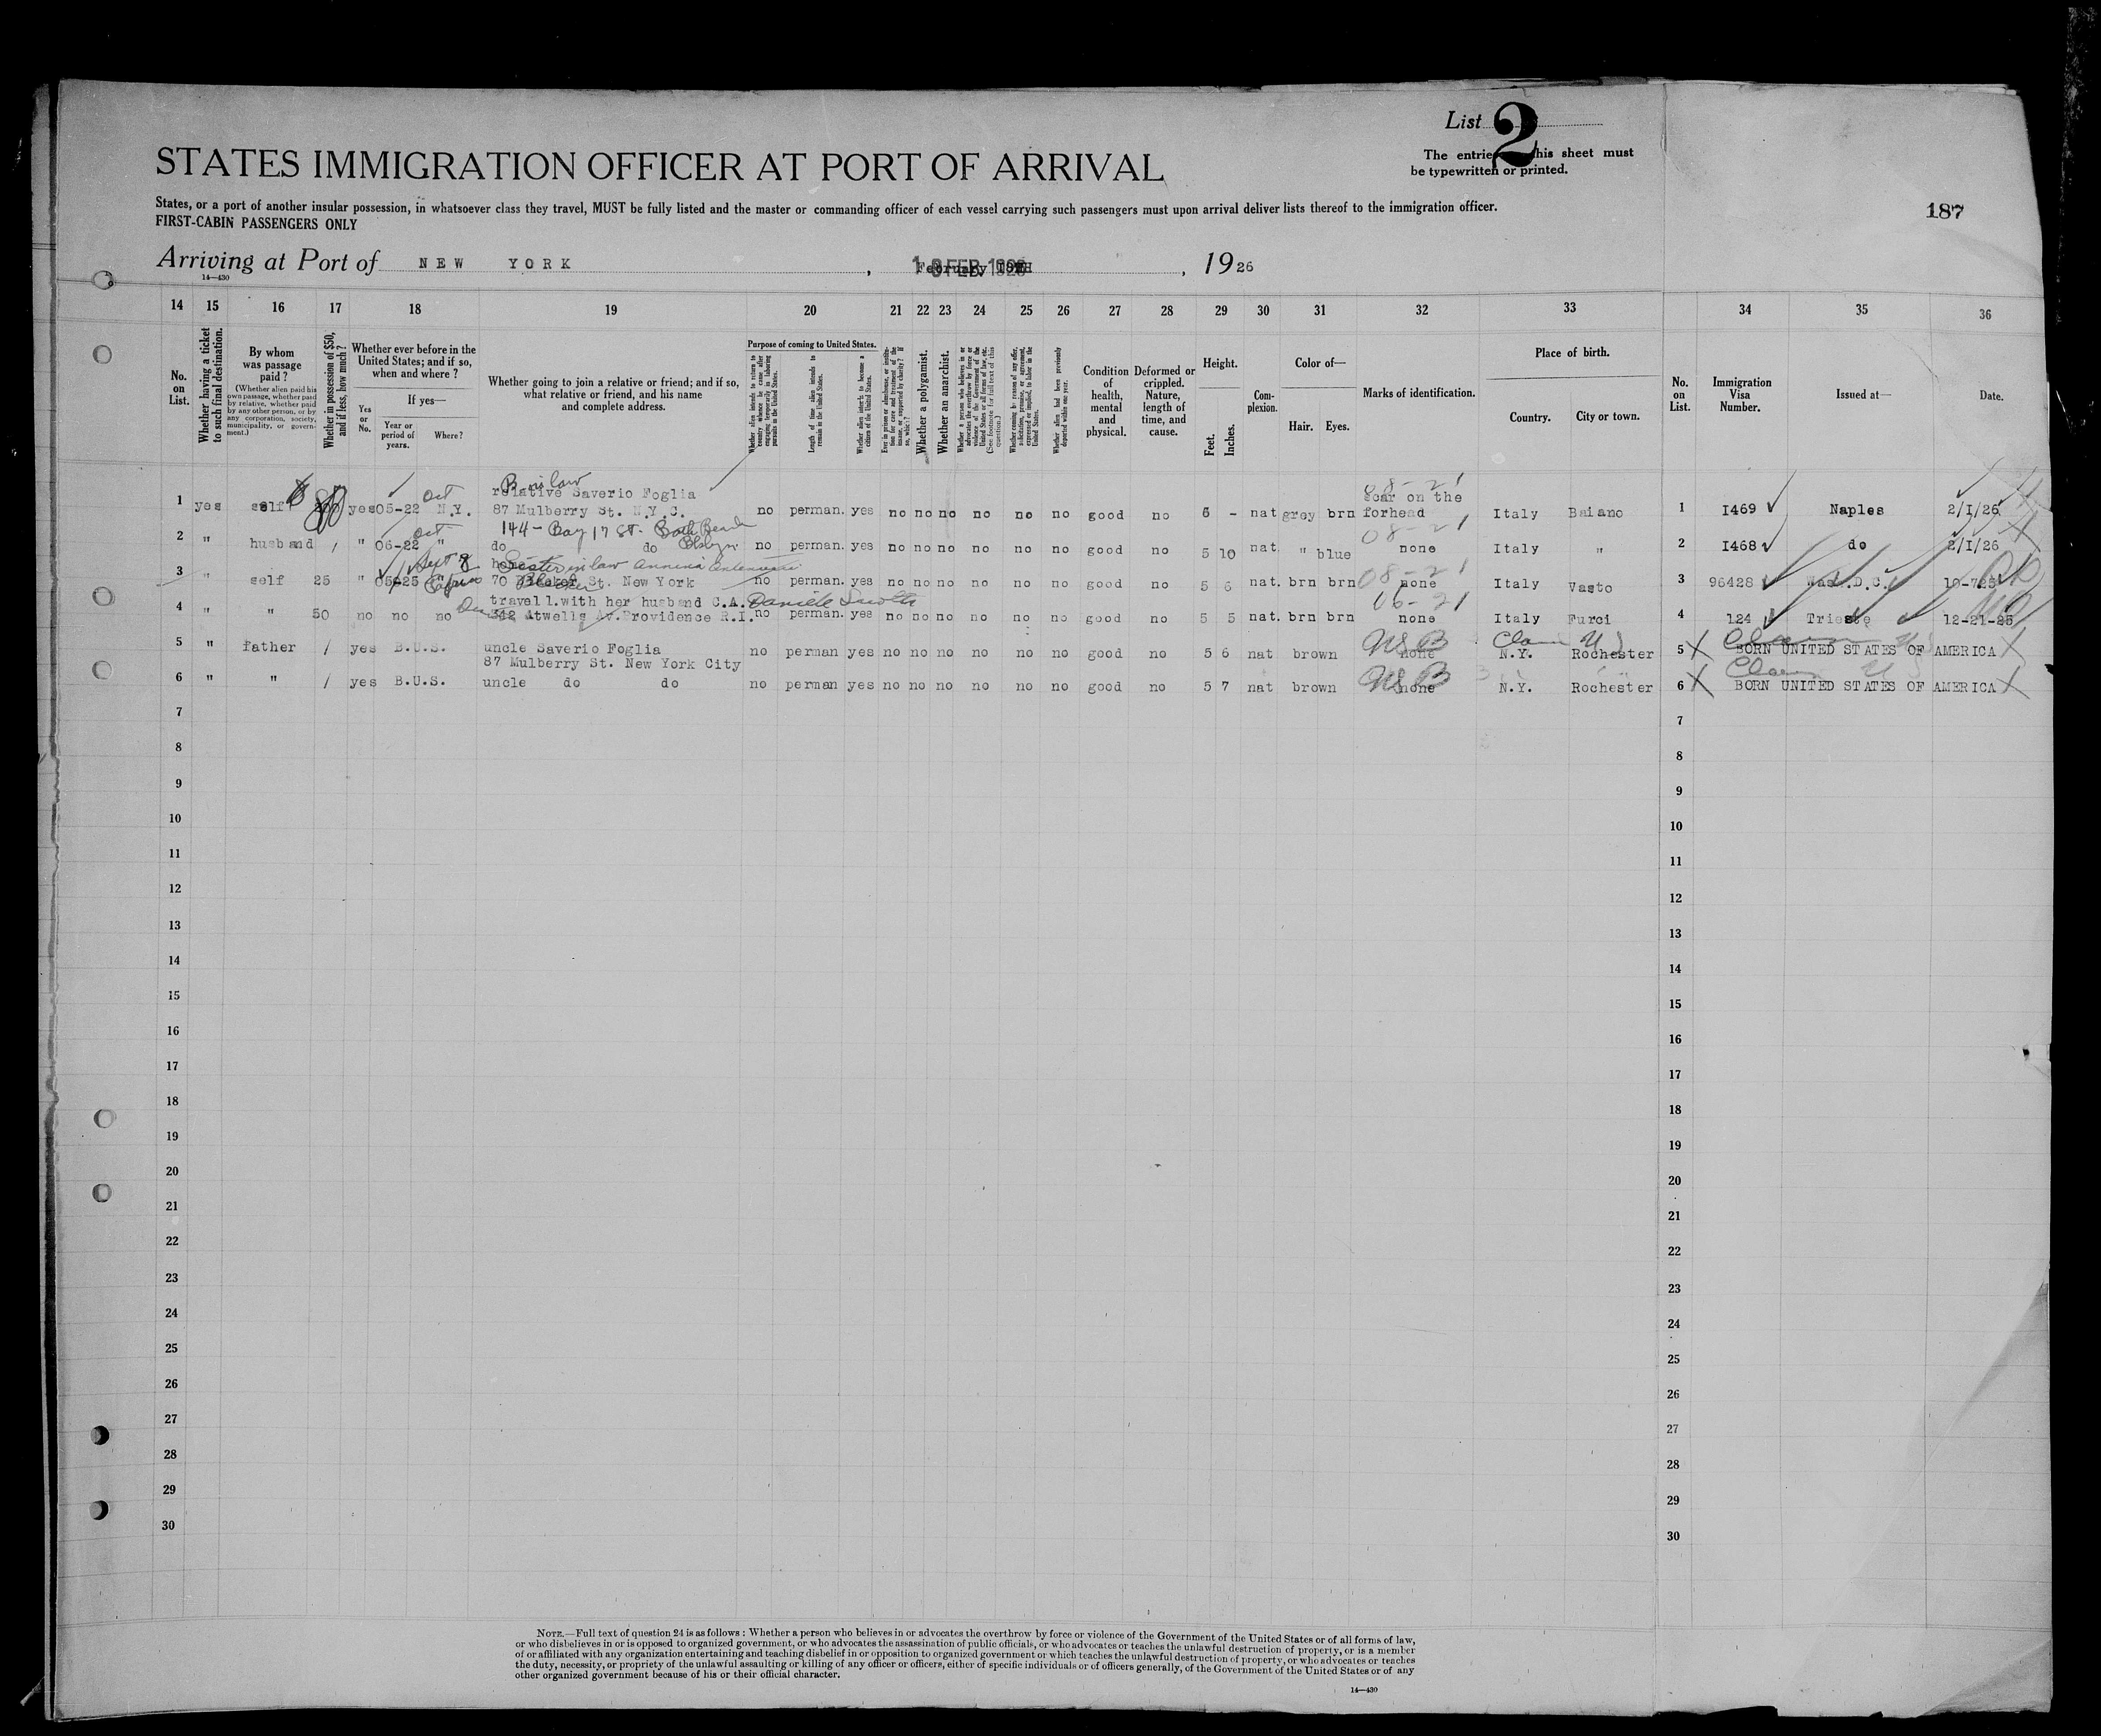 List 2
The entries this sheet must
be typewritten or printed.
STATES IMMIGRATION OFFICER AT PORT OF ARRIVAL
187
States, or a port of another insular possession, in whatsoever class they travel, MUST be fully listed and the master or commanding officer of each vessel carrying such passengers must upon arrival deliver lists thereof to the immigration officer.
FIRST-CABIN PASSENGERS ONLY
Arriving at Port of NEW YORK , February , 1926
14—430
14 15 16 17 18 19 20 21 22 23 24 25 26 27 28 29 30 31 32 33 34 35 36
No. on List.
Whether having a ticket to such final destination.
By whom was passage paid?
(Whether alien paid his own passage, whether paid by relative, whether paid by any other person, or by any corporation, society, municipality, or government.)
Whether in possession of $50, and if less, how much?
Whether ever before in the United States; and if so, when and where?
Yes or No.
If yes—
Year or period of years.
Where?
Whether going to join a relative or friend; and if so, what relative or friend, and his name and complete address.
Purpose of coming to United States.
Whether alien intends to return to country whence he came after engaging temporarily in laboring pursuits in the United States.
Length of time alien intends to remain in the United States.
Whether alien intends to become a citizen of the United States.
Ever in prison or almshouse, or institution for care and treatment of the insane, or supported by charity? If so, which?
Whether a polygamist.
Whether an anarchist.
Whether a person who believes in or advocates the overthrow by force or violence of the Government of the United States or all forms of law, etc. (See footnote for full text of this question.)
Whether coming by reason of any offer, solicitation, promise, or agreement, expressed or implied, to labor in the United States.
Whether alien had been previously deported within one year.
Condition of health, mental and physical.
Deformed or crippled. Nature, length of time, and cause.
Height.
Feet. Inches.
Complexion.
Color of—
Hair. Eyes.
Marks of identification.
Place of birth.
Country. City or town.
No. on List.
Immigration Visa Number.
Issued at—
Date.
B in law
08-21
relative Saverio Foglia scar on the
1 yes self yes 05-22 Oct N.Y. 87 Mulberry St. N.Y.C. no perman. yes no no no no no no good no 6 - nat grey brn forhead Italy Baiano 1 I469 Naples 2/I/26
144- Bay 17 St. Bath Beach
08-21
2 " husband / " 06-22 Oct " do do Bklyn no perman. yes no no no no no no good no 5 10 nat. " blue none Italy " 2 I468 do 2/I/26
Sister in law Annina
08-21
3 " self 25 " 05-25 70 Bleeker St. New York no perman. yes no no no no no no good no 5 6 nat. brn brn none Italy Vasto 3 96428 Was.D.C. 10-725
travell.with her husband C.A. Daniele
06-21
4 " " 50 no no no 342 Atwells Av.Providence R.I. no perman. yes no no no no no no good no 5 5 nat. brn brn none Italy Furci 4 124 Trieste 12-21-25
USB Claim US Claim US
5 " father / yes B.U.S. uncle Saverio Foglia no perman yes no no no no no no good no 5 6 nat brown none N.Y. Rochester 5 BORN UNITED STATES OF AMERICA
87 Mulberry St. New York City
USB Claim US
6 " " / yes B.U.S. uncle do do no perman yes no no no no no no good no 5 7 nat brown none N.Y. Rochester 6 BORN UNITED STATES OF AMERICA
7 7
8 8
9 9
10 10
11 11
12 12
13 13
14 14
15 15
16 16
17 17
18 18
19 19
20 20
21 21
22 22
23 23
24 24
25 25
26 26
27 27
28 28
29 29
30 30
NOTE.—Full text of question 24 is as follows: Whether a person who believes in or advocates the overthrow by force or violence of the Government of the United States or of all forms of law,
or who disbelieves in or is opposed to organized government, or who advocates the assassination of public officials, or who advocates or teaches the unlawful destruction of property, or is a member
of or affiliated with any organization entertaining and teaching disbelief in or opposition to organized government or which teaches the unlawful destruction of property, or who advocates or teaches
the duty, necessity, or propriety of the unlawful assaulting or killing of any officer or officers, either of specific individuals or of officers generally, of the Government of the United States or of any
other organized government because of his or their official character.
14—430